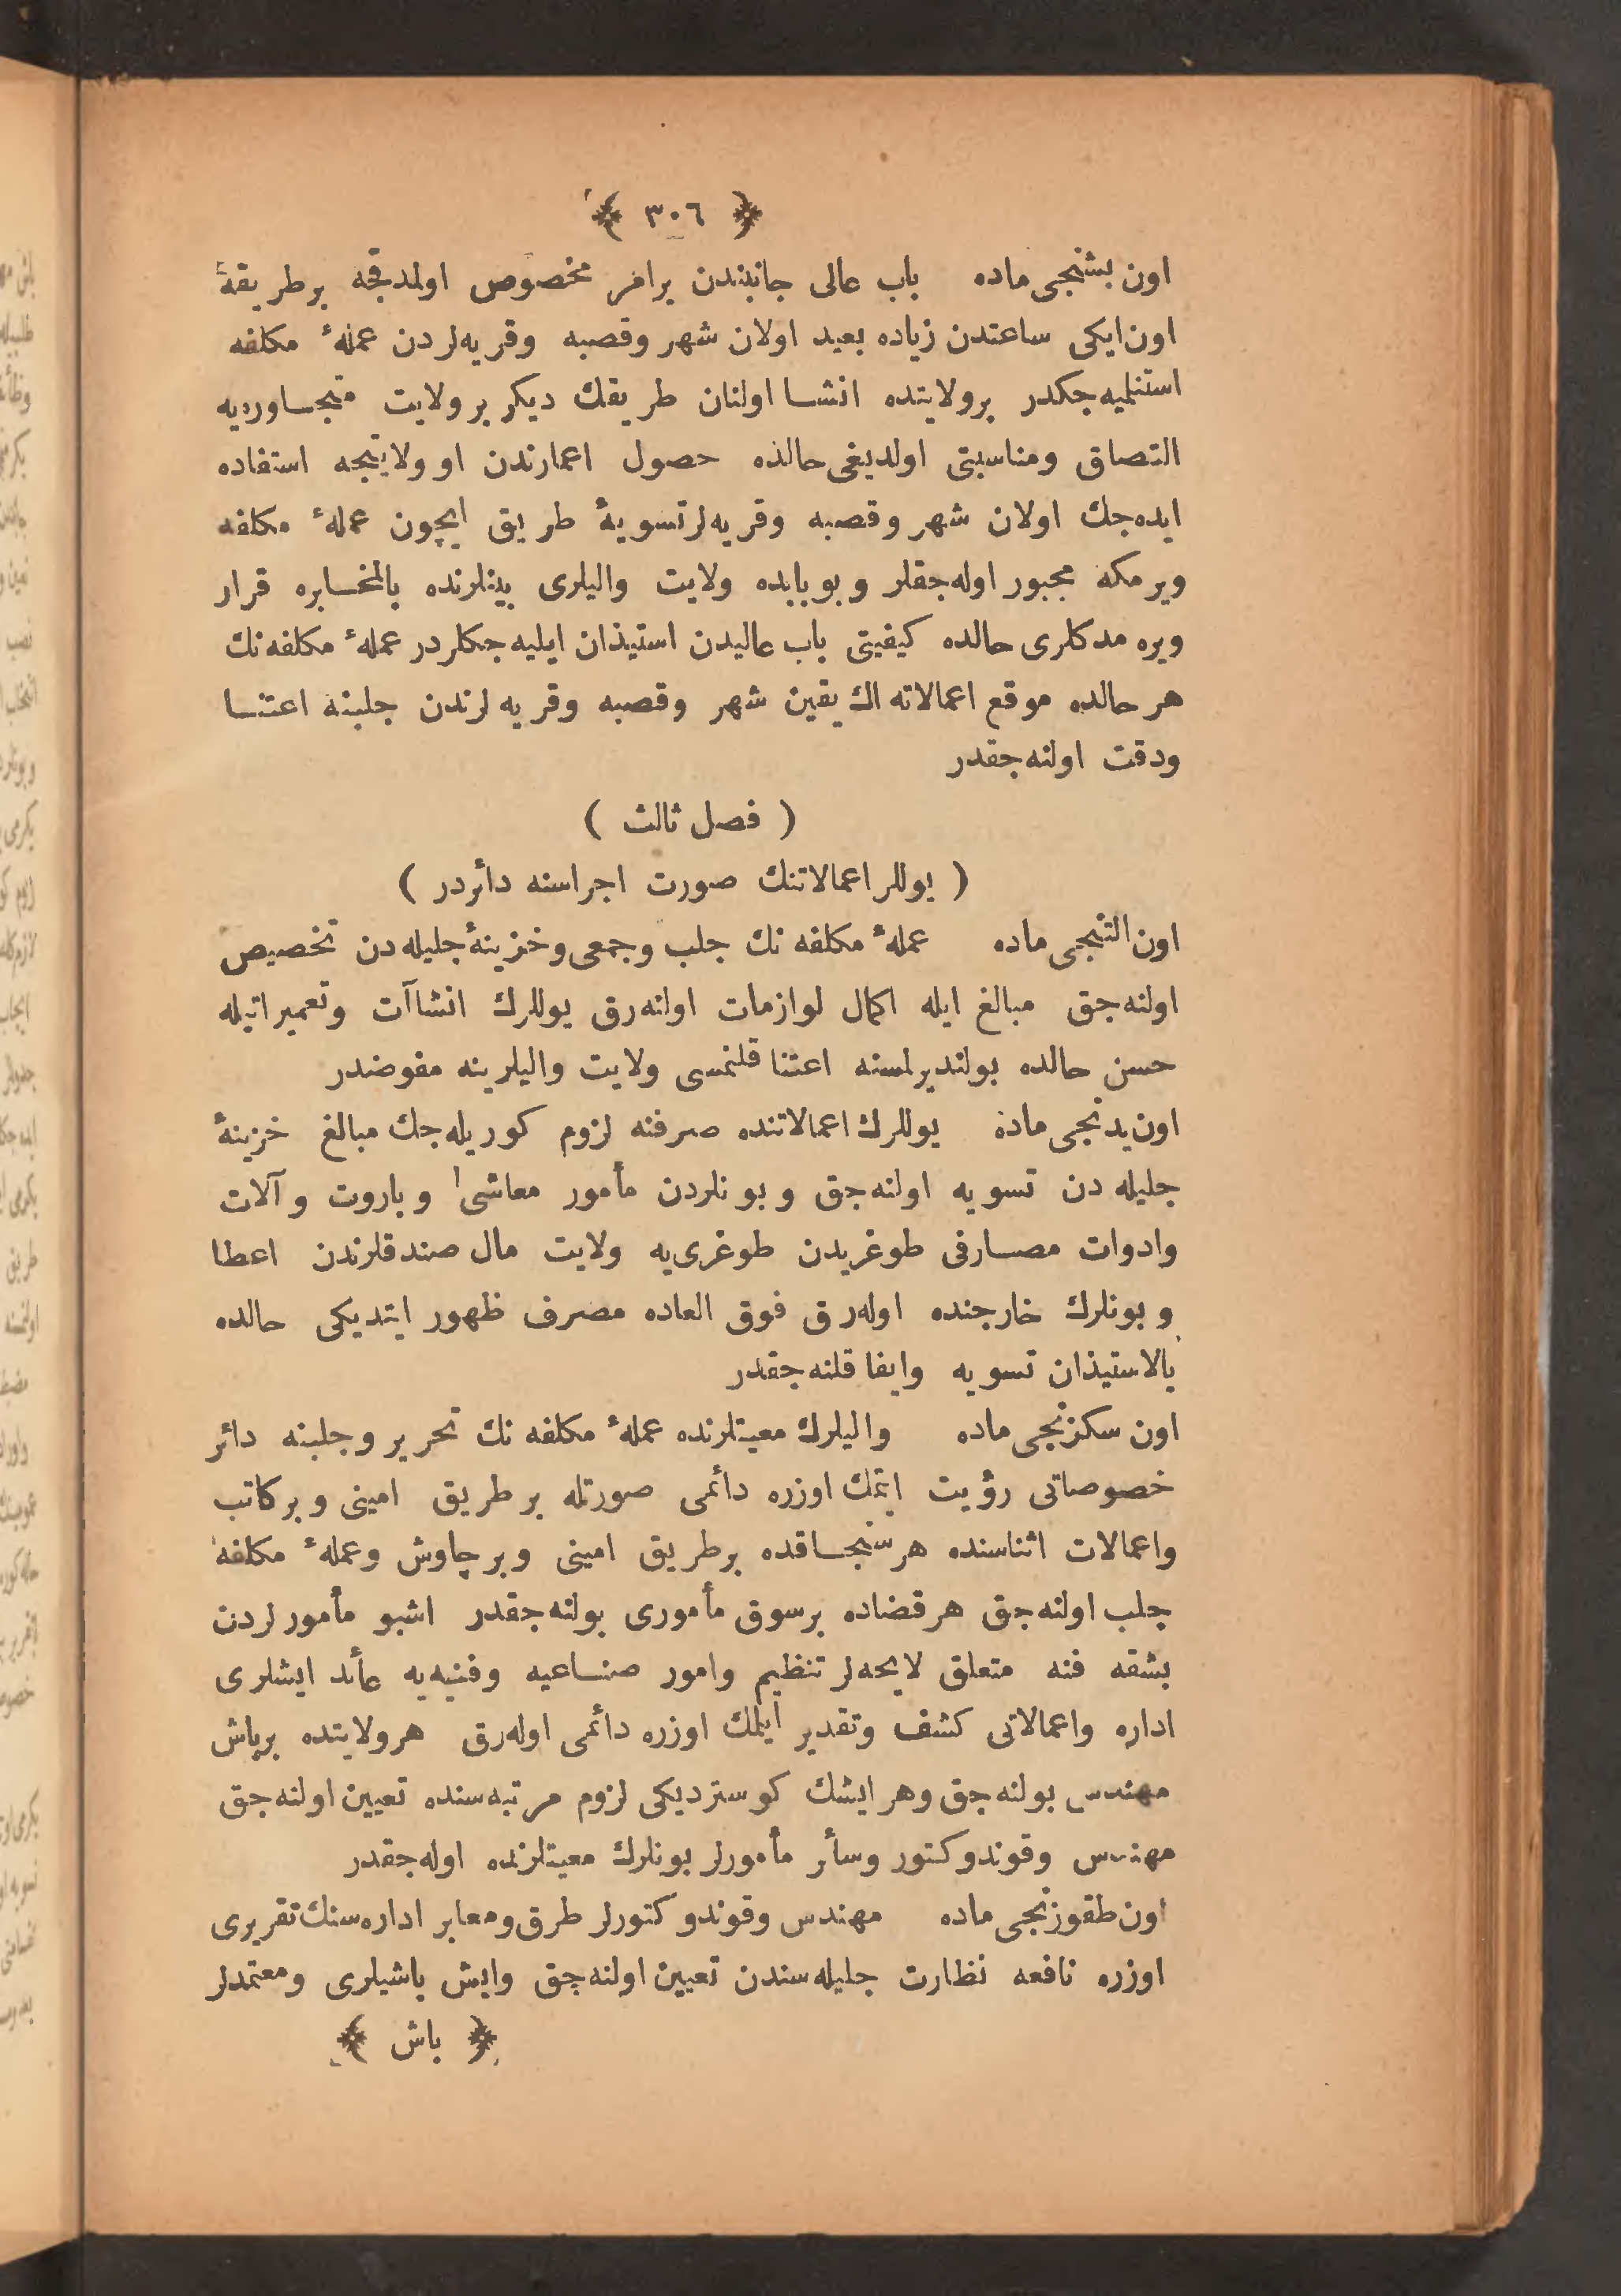 ﴿ ٣٠٦ ﴾
اون بشنجی ماده باب عالی جانبندن برامر مخصوص اولمدقجه برطریقهٔ
اون‌ایکی ساعتدن زیاده بعید اولان شهر وقصبه وقریه‌لردن عملهٔ مکلفه
استنلمیه‌جکدر برولایتده انشا اولنان طریقك دیکر برولایت متجاوره‌یه
التصاق ومناسبتی اولدیغی حالده حصول اعمارندن او ولایتجه استفاده
ایده‌جك اولان شهر وقصبه وقریه‌لرتسویهٔ طریق ایچون عملهٔ مکلفه
ویرمکه مجبور اوله‌جقلر وبوبابده ولایت والیلری بینلرنده بالمخابره قرار
ویره مدکلری حالده کیفیتی باب عالیدن استیذان ایلیه‌جکلردر عملهٔ مکلفه‌نك
هرحالده موقع اعمالاته اك یقین شهر وقصبه وقریه لرندن جلبنه اعتنا
ودقت اولنه‌جقدر
( فصل ثالث )
( یوللر اعمالاتنك صورت اجراسنه دائردر )
اون التنجی ماده عملهٔ مکلفه نك جلب وجمعی وخزینهٔ جلیله‌دن تخصیص
اولنه‌جق مبالغ ایله اکمال لوازمات اولنه‌رق یوللرك انشاآت وتعمیراتیله
حسن حالده بولندیرلمسنه اعتنا قلنمسی ولایت والیلرینه مفوضدر
اون‌یدنجی ماده یوللرك اعمالاتنده صرفنه لزوم کوریله‌جك مبالغ خزینهٔ
جلیله‌دن تسویه اولنه‌جق وبونلردن مأمور معاشی وباروت وآلات
وادوات مصارفی طوغریدن طوغری‌یه ولایت مال صندقلرندن اعطا
وبونلرك خارجنده اوله‌رق فوق العاده مصرف ظهور ایتدیکی حالده
بالاستیذان تسویه وایفا قلنه‌جقدر
اون سکزنجی ماده والیلرك معیتلرنده عملهٔ مکلفه نك تحریر وجلبنه دائر
خصوصاتی رؤیت ایتمك اوزره دائمی صورتله برطریق امینی وبرکاتب
واعمالات اثناسنده هرسنجاقده برطریق امینی وبرچاوش وعملهٔ مکلفه
جلب اولنه‌جق هرقضاده برسوق مأموری بولنه‌جقدر اشبو مأمورلردن
بشقه فنه متعلق لایحه‌لر تنظیم وامور صناعیه وفنیه‌یه عائد ایشلری
اداره واعمالاتی کشف وتقدیر ایلمك اوزره دائمی اوله‌رق هرولایتده برباش
مهندس بولنه‌جق وهرایشك کوستردیکی لزوم مرتبه‌سنده تعیین اولنه‌جق
مهندس وقوندوکتور وسائر مأمورلر بونلرك معیتلرنده اوله‌جقدر
اون‌طقوزنجی ماده مهندس وقوندوکتورلر طرق ومعابر اداره‌سنك‌تقریری
اوزره نافعه نظارت جلیله‌سندن تعیین اولنه‌جق وایش باشیلری ومعتمدلر
﴿ باش ﴾